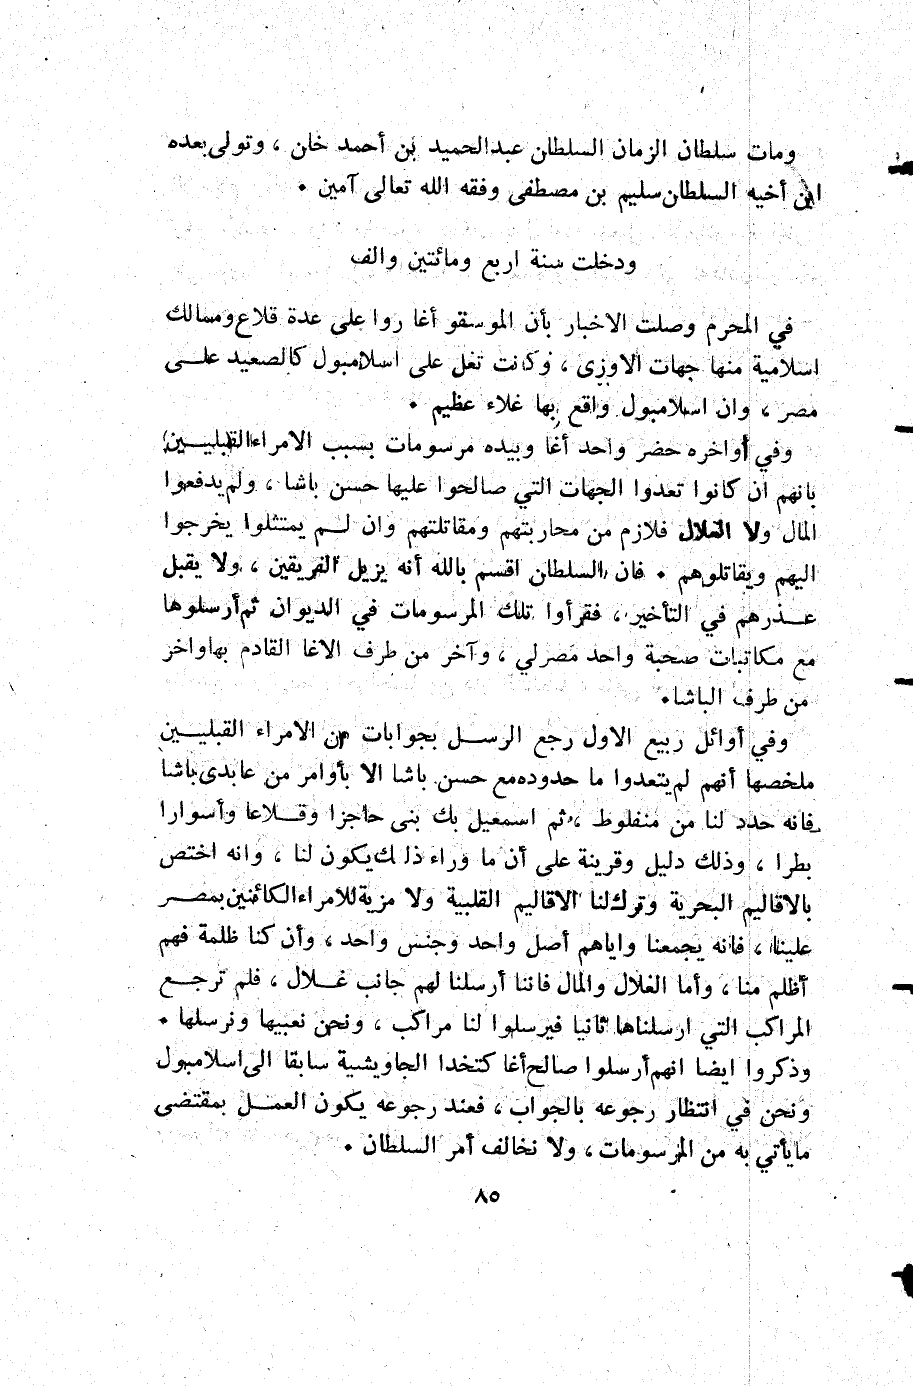 ومات سلطان الزمان السلطان عبدالحميد بن أحمد خان ، وتولى بعده
ابن أخيه السلطان سليم بن مصطفى وفقه الله تعالى آمين •
ودخلت سنة اربع ومائتين والف
في المحرم وصلت الاخبار بأن الموسقو أغا روا على عدة قلاع ومسالك
اسلامية منها جهات الاوزى ، وكانت تغل على اسلامبول كالصعيد علـى
مصر ، وان اسلامبول واقع بها غلاء عظيم •
وفي أواخره حضر واحد أغا وبيده مرسومات بسبب الامراء القبليـين
بانهم ان كانوا تعدوا الجهات التي صالحوا عليها حسن باشا ، ولم يدفعوا
المال ولا الغلال فلازم من محاربتهم ومقاتلتهم وان لـم يمتثلوا يخرجوا
اليهم ويقاتلوهم • فان السلطان اقسم بالله أنه يزيل الفريقين ، ولا يقبل
عـذرهم في التأخير ، فقرأوا تلك المرسومات في الديوان ثم أرسلوها
مع مكاتبات صحبة واحد مصرلي ، وآخر من طرف الاغا القادم بهاواخر
من طرف الباشا•
وفي أوائل ربيع الاول رجع الرسـل بجوابات من الامراء القبليـين
ملخصها أنهم لم يتعدوا ما حدوده مع حسن باشا الا بأوامر من عابدى باشا
فانه حدد لنا من منفلوط ، ثم اسمعيل بك بنى حاجزا وقـلاعا وأسوارا
بطرا ، وذلك دليل وقرينة على أن ما وراء ذلك يكون لنا ، وانه اختص
بالاقاليم البحرية وترك لنا الاقاليم القلبية ولا مزية للامراء الكائنين بمصـر
علينا ، فانه يجمعنا واياهم أصل واحد وجنس واحد ، وأن كنا ظلمة فهم
أظلم منا ، وأما الغلال والمال فاننا أرسلنا لهم جانب غـلال ، فلم ترجـع
المراكب التي ارسلناها ثانيا فيرسلوا لنا مراكب ، ونحن نعبيها ونرسلها •
وذكروا ايضا انهم أرسلوا صالح أغا كتخدا الجاويشية سابقا الى اسلامبول
ونحن في انتظار رجوعه بالجواب ، فعند رجوعه يكون العمـل بمقتضى
ما يأتي به من المرسومات ، ولا نخالف أمر السلطان •
٨٥